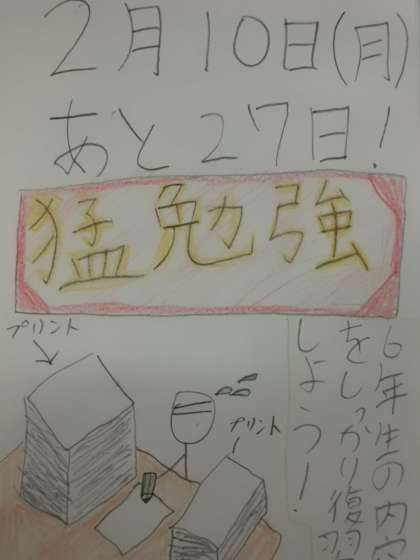 2月10日(月)
あと27日!
猛勉強
6年生の内容
をしっかり復習
しよう!
プリント
プリント